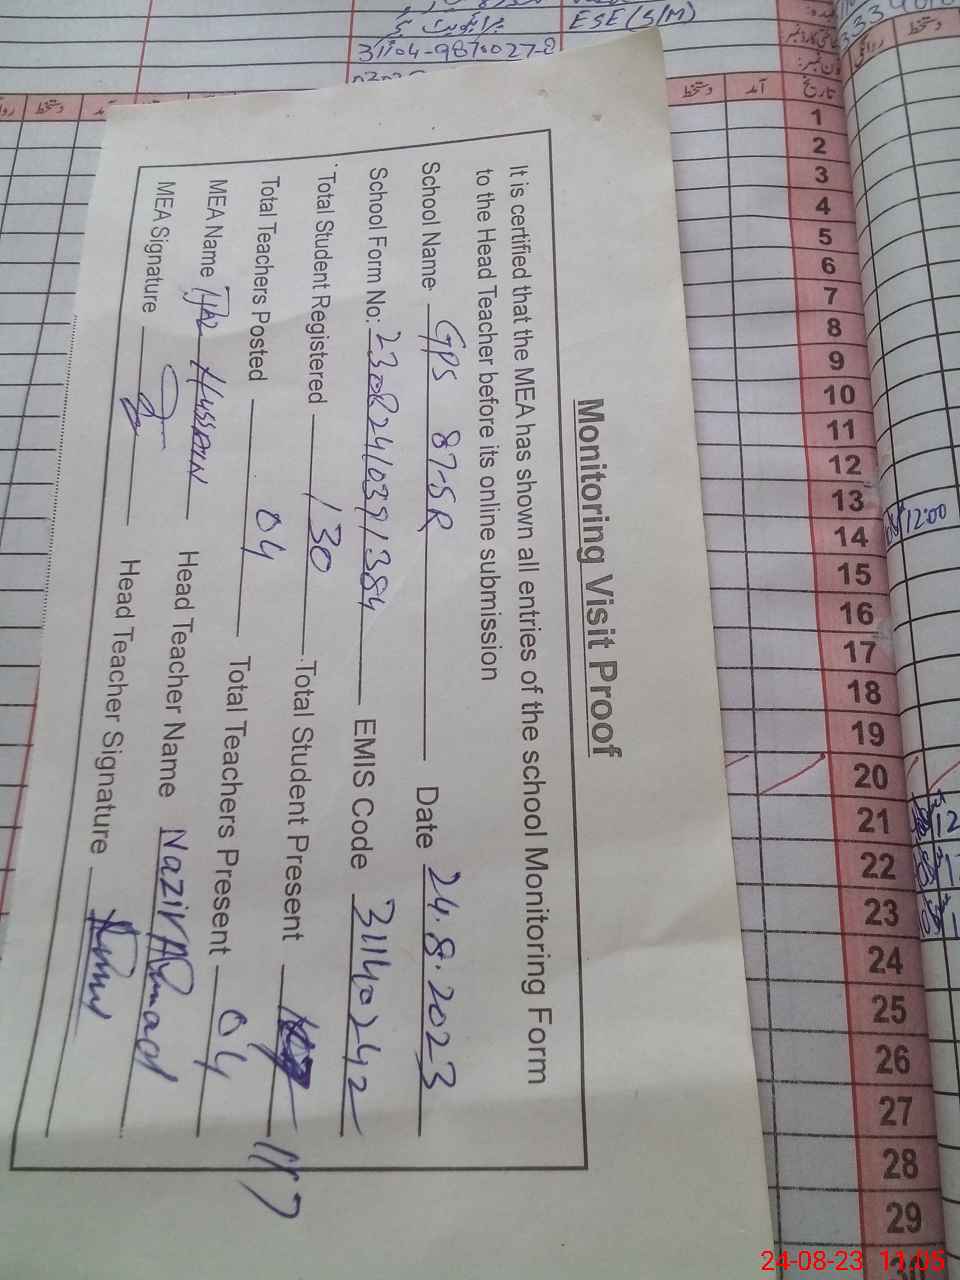 ESE (S/M)
31104-9870027-8
دستخط
آمد
تاریخ
1
2
3
4
5
6
7
8
9
10
11
12
13
14
15
16
17
18
19
20
21
22
23
24
25
26
27
28
29
12:00
Monitoring Visit Proof
It is certified that the MEA has shown all entries of the school Monitoring Form
to the Head Teacher before its online submission
School Name GPS 87-5R Date 24.8.2023
School Form No: EMIS Code 31140242
Total Student Registered 130 Total Student Present 117
Total Teachers Posted 04 Total Teachers Present 04
MEA Name Ijaz Hussain Head Teacher Name Nazir Ahmad
MEA Signature Head Teacher Signature
24-08-23 11:05